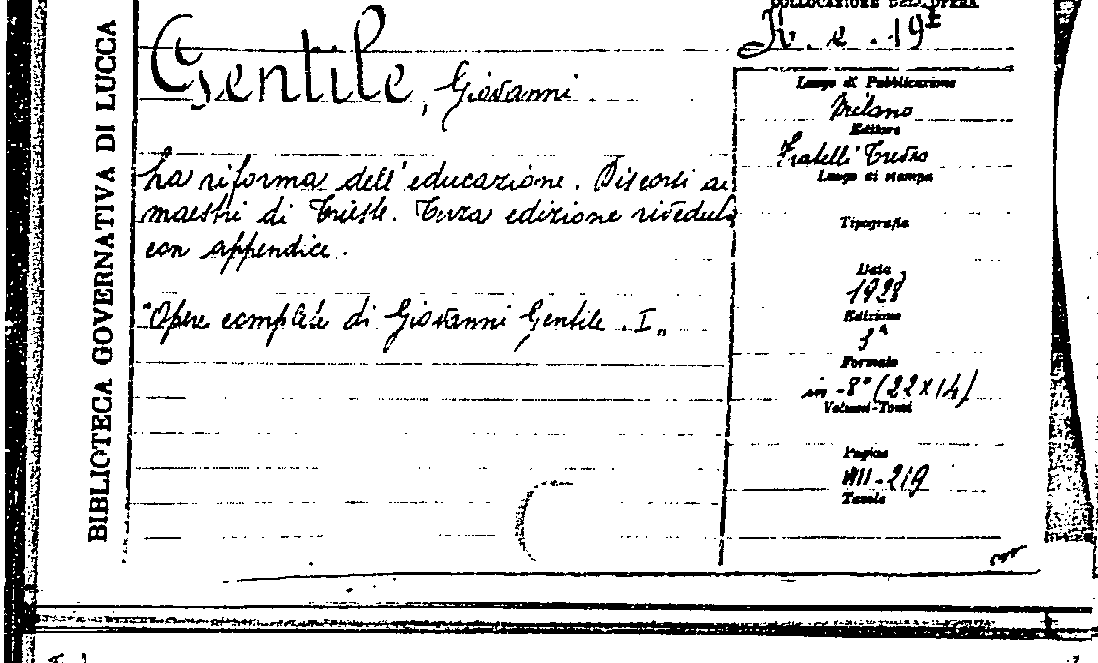 BIBLIOTECA GOVERNATIVA DI LUCCA
COLLOCAZIONE DELL'OPERA
Gentile, Giovanni.
La riforma dell'educazione. Discorsi ai
maestri di Trieste. Terza edizione riveduta
con appendice.
"Opere complete di Giovanni Gentile. I„
Luogo di Pubblicazione
Milano
Editore
Fratelli Treves
Luogo di stampa
Tipografia
Data
1928
Edizione
3ª
Formato
in-8° (22x14)
Volumi-Tomi
Pagine
VIII-219
Tavole